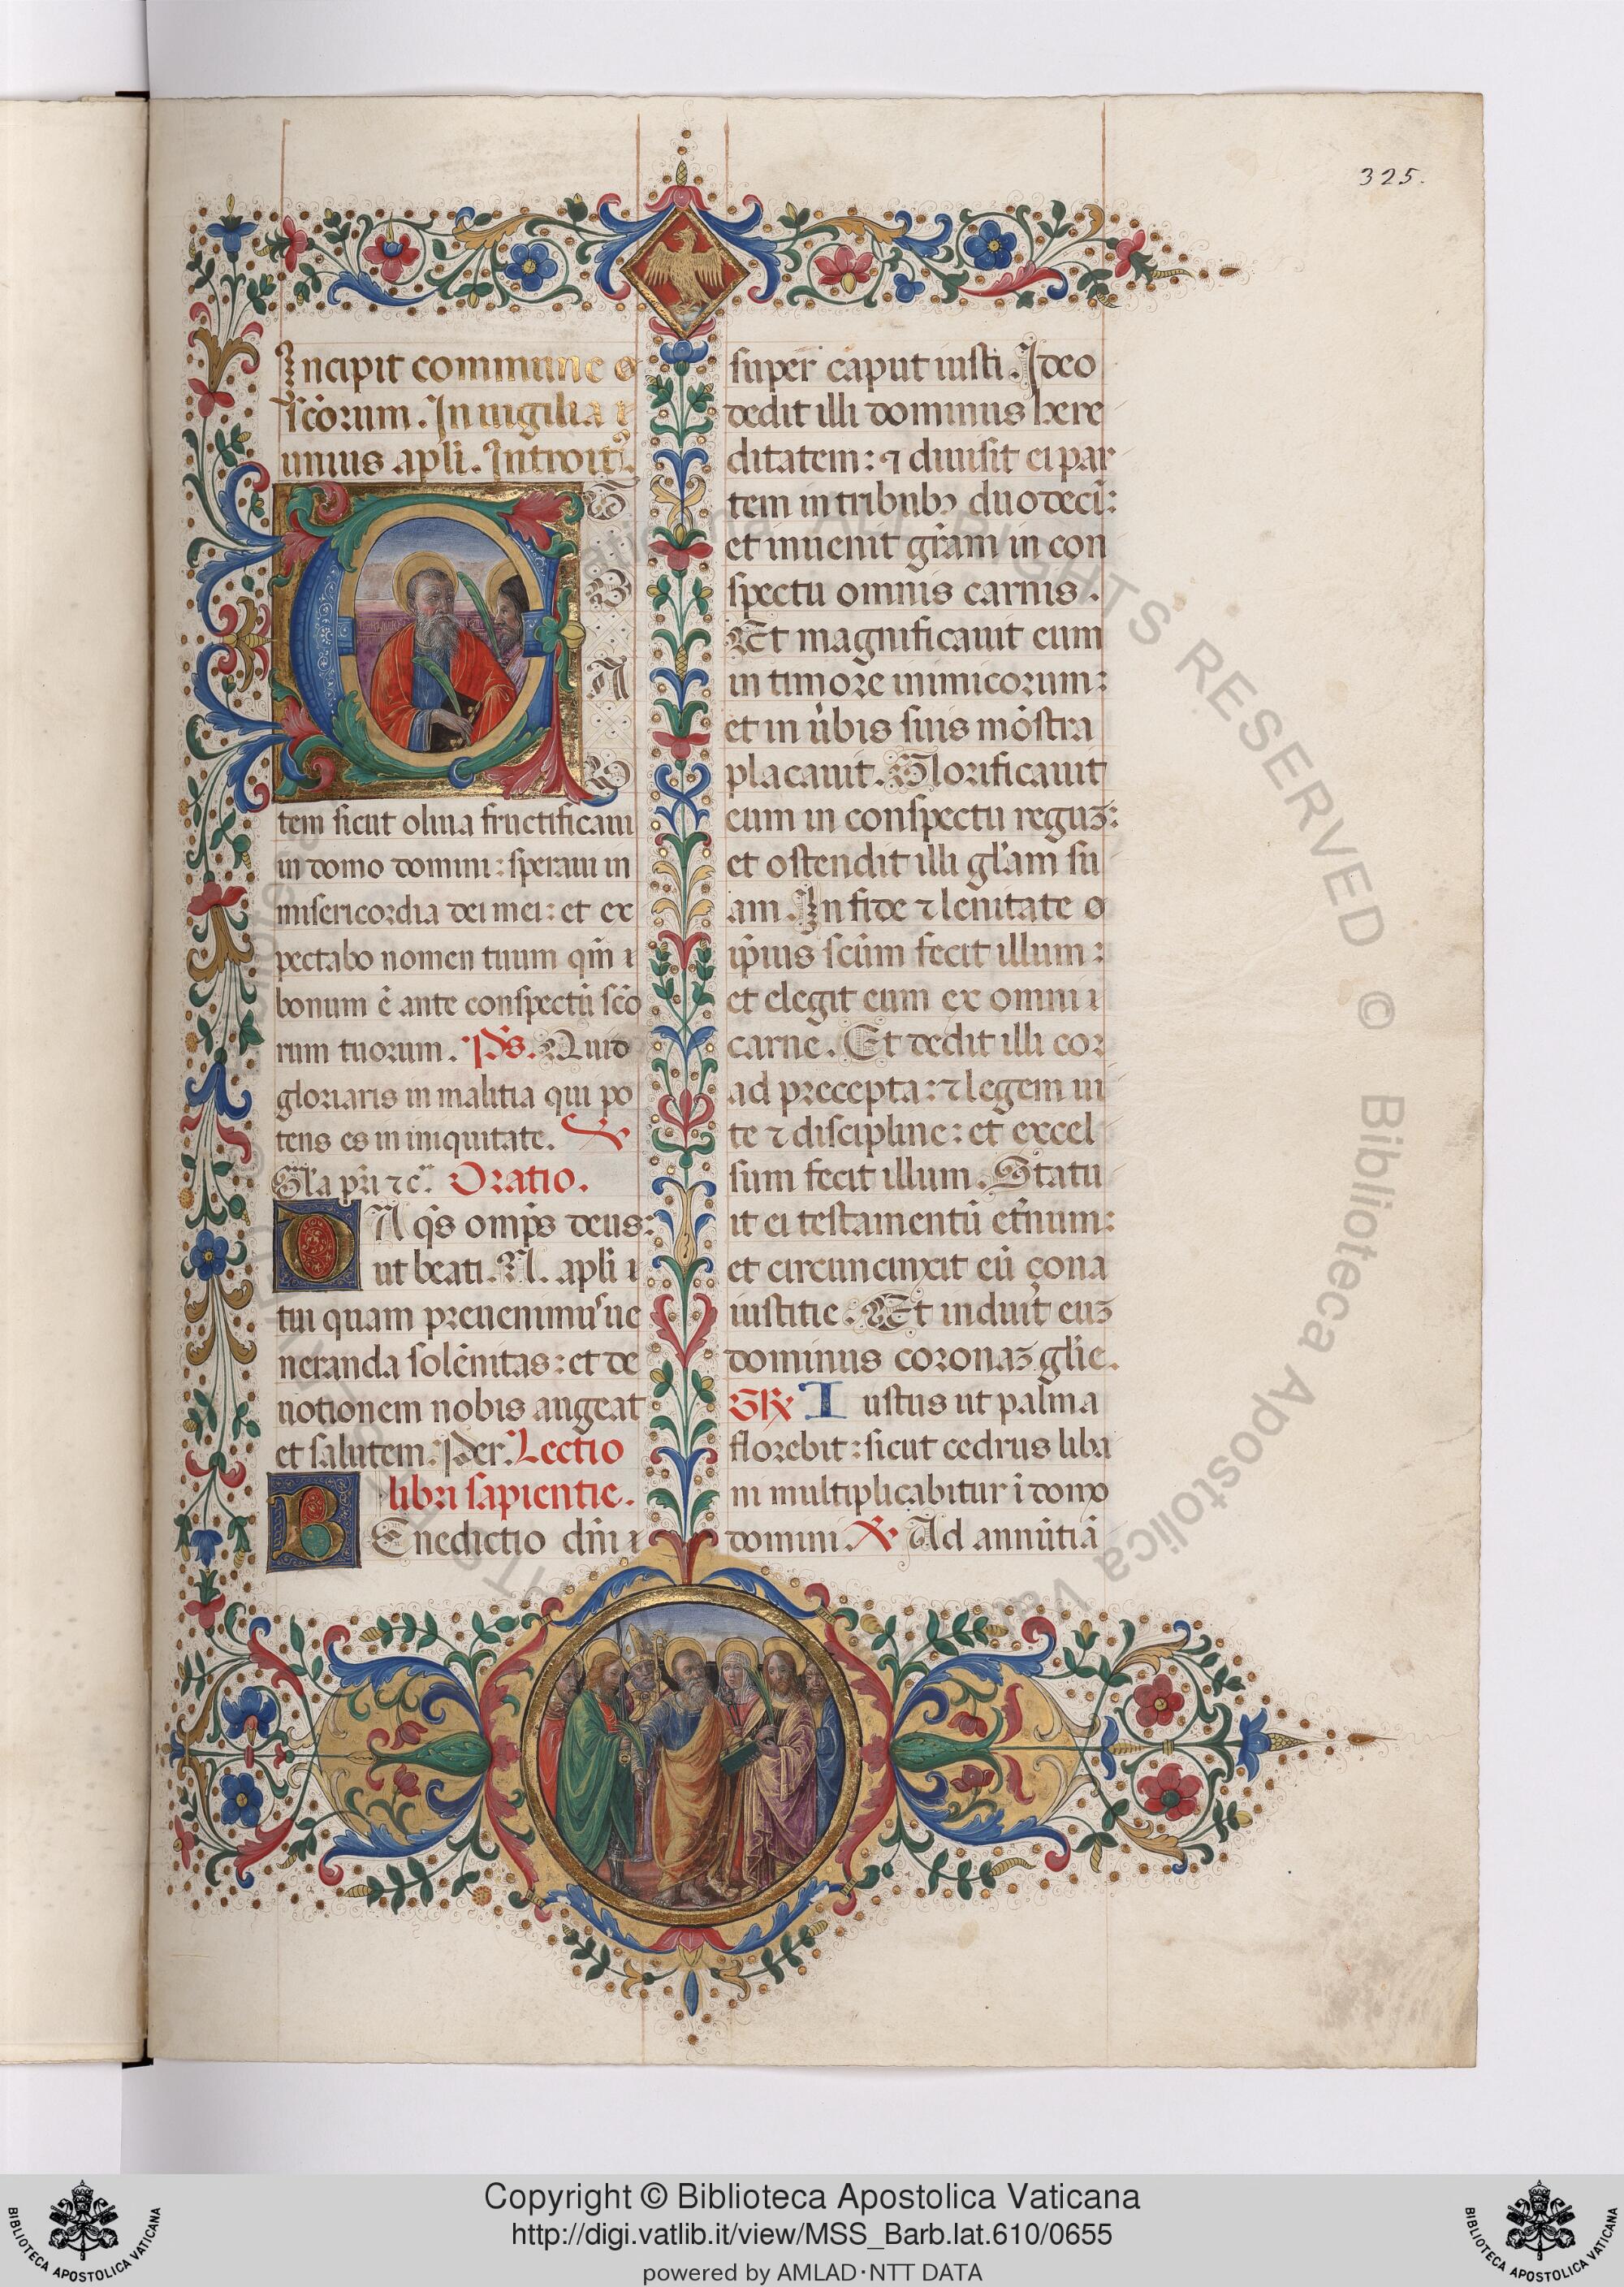 325.
Incipit commune
scōrum. In uigilia i
unius apli. Introit⁹.
E
G
O
A
U
tem sicut oliua fructificaui
in domo domini: speraui in
misericordia dei mei: et ex
pectabo nomen tuum qm̄
bonum ē ante conspectū scō
rum tuorum. Ps. Quid
gloriaris in malitia qui po
tens es in iniquitate. V
Gl'a pri ⁊c̄. Oratio.
DA q̄s omp̄s deus:
ut beati. N. apli
tui quam preuenimus ue
neranda solēnitas: et de
uotionem nobis augeat
et salutem. Per. Lectio
libri sapientie.
BEnedictio dn̄i
super caput iusti. Ideo
dedit illi dominus here
ditatem: ⁊ diuisit ei par
tem in tribubꝫ duodecī:
et inuenit grām in con
spectu omnis carnis.
Et magnificauit eum
in timore inimicorum:
et in ūbis suis mōstra
placauit. Glorificauit
eum in conspectu reguꝫ:
et ostendit illi gl'am su
am. In fide ⁊ lenitate
ip̄ius scūm fecit illum:
et elegit eum ex omni
carne. Et dedit illi cor
ad precepta: ⁊ legem ui
te ⁊ discipline: et excel
sum fecit illum. Statu
it ei testamentū et̄num:
et circuncinxit eū çona
iustitie. Et induit euꝫ
dominus coronaꝫ gl'ie.
GR Iustus ut palma
florebit: sicut cedrus liba
ni multiplicabitur ī domo
domini. V Ad annūtiā
ALL RIGHTS RESERVED © Biblioteca Apostolica Vaticana
Copyright © Biblioteca Apostolica Vaticana
http://digi.vatlib.it/view/MSS_Barb.lat.610/0655
powered by AMLAD·NTT DATA
BIBLIOTECA APOSTOLICA VATICANA
BIBLIOTECA APOSTOLICA VATICANA